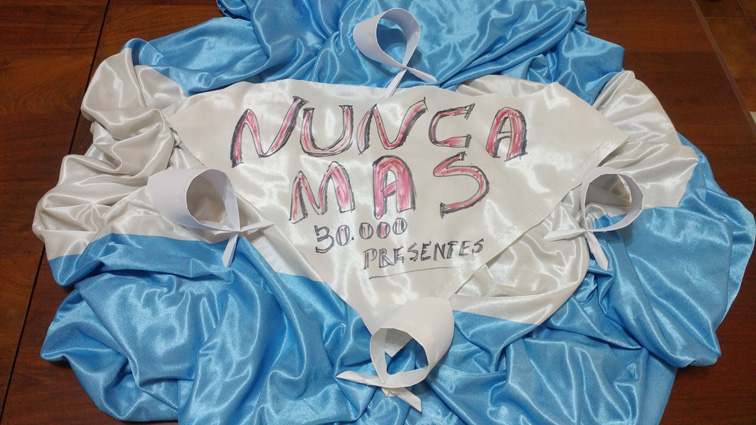 NUNCA
MAS
30.000
PRESENTES